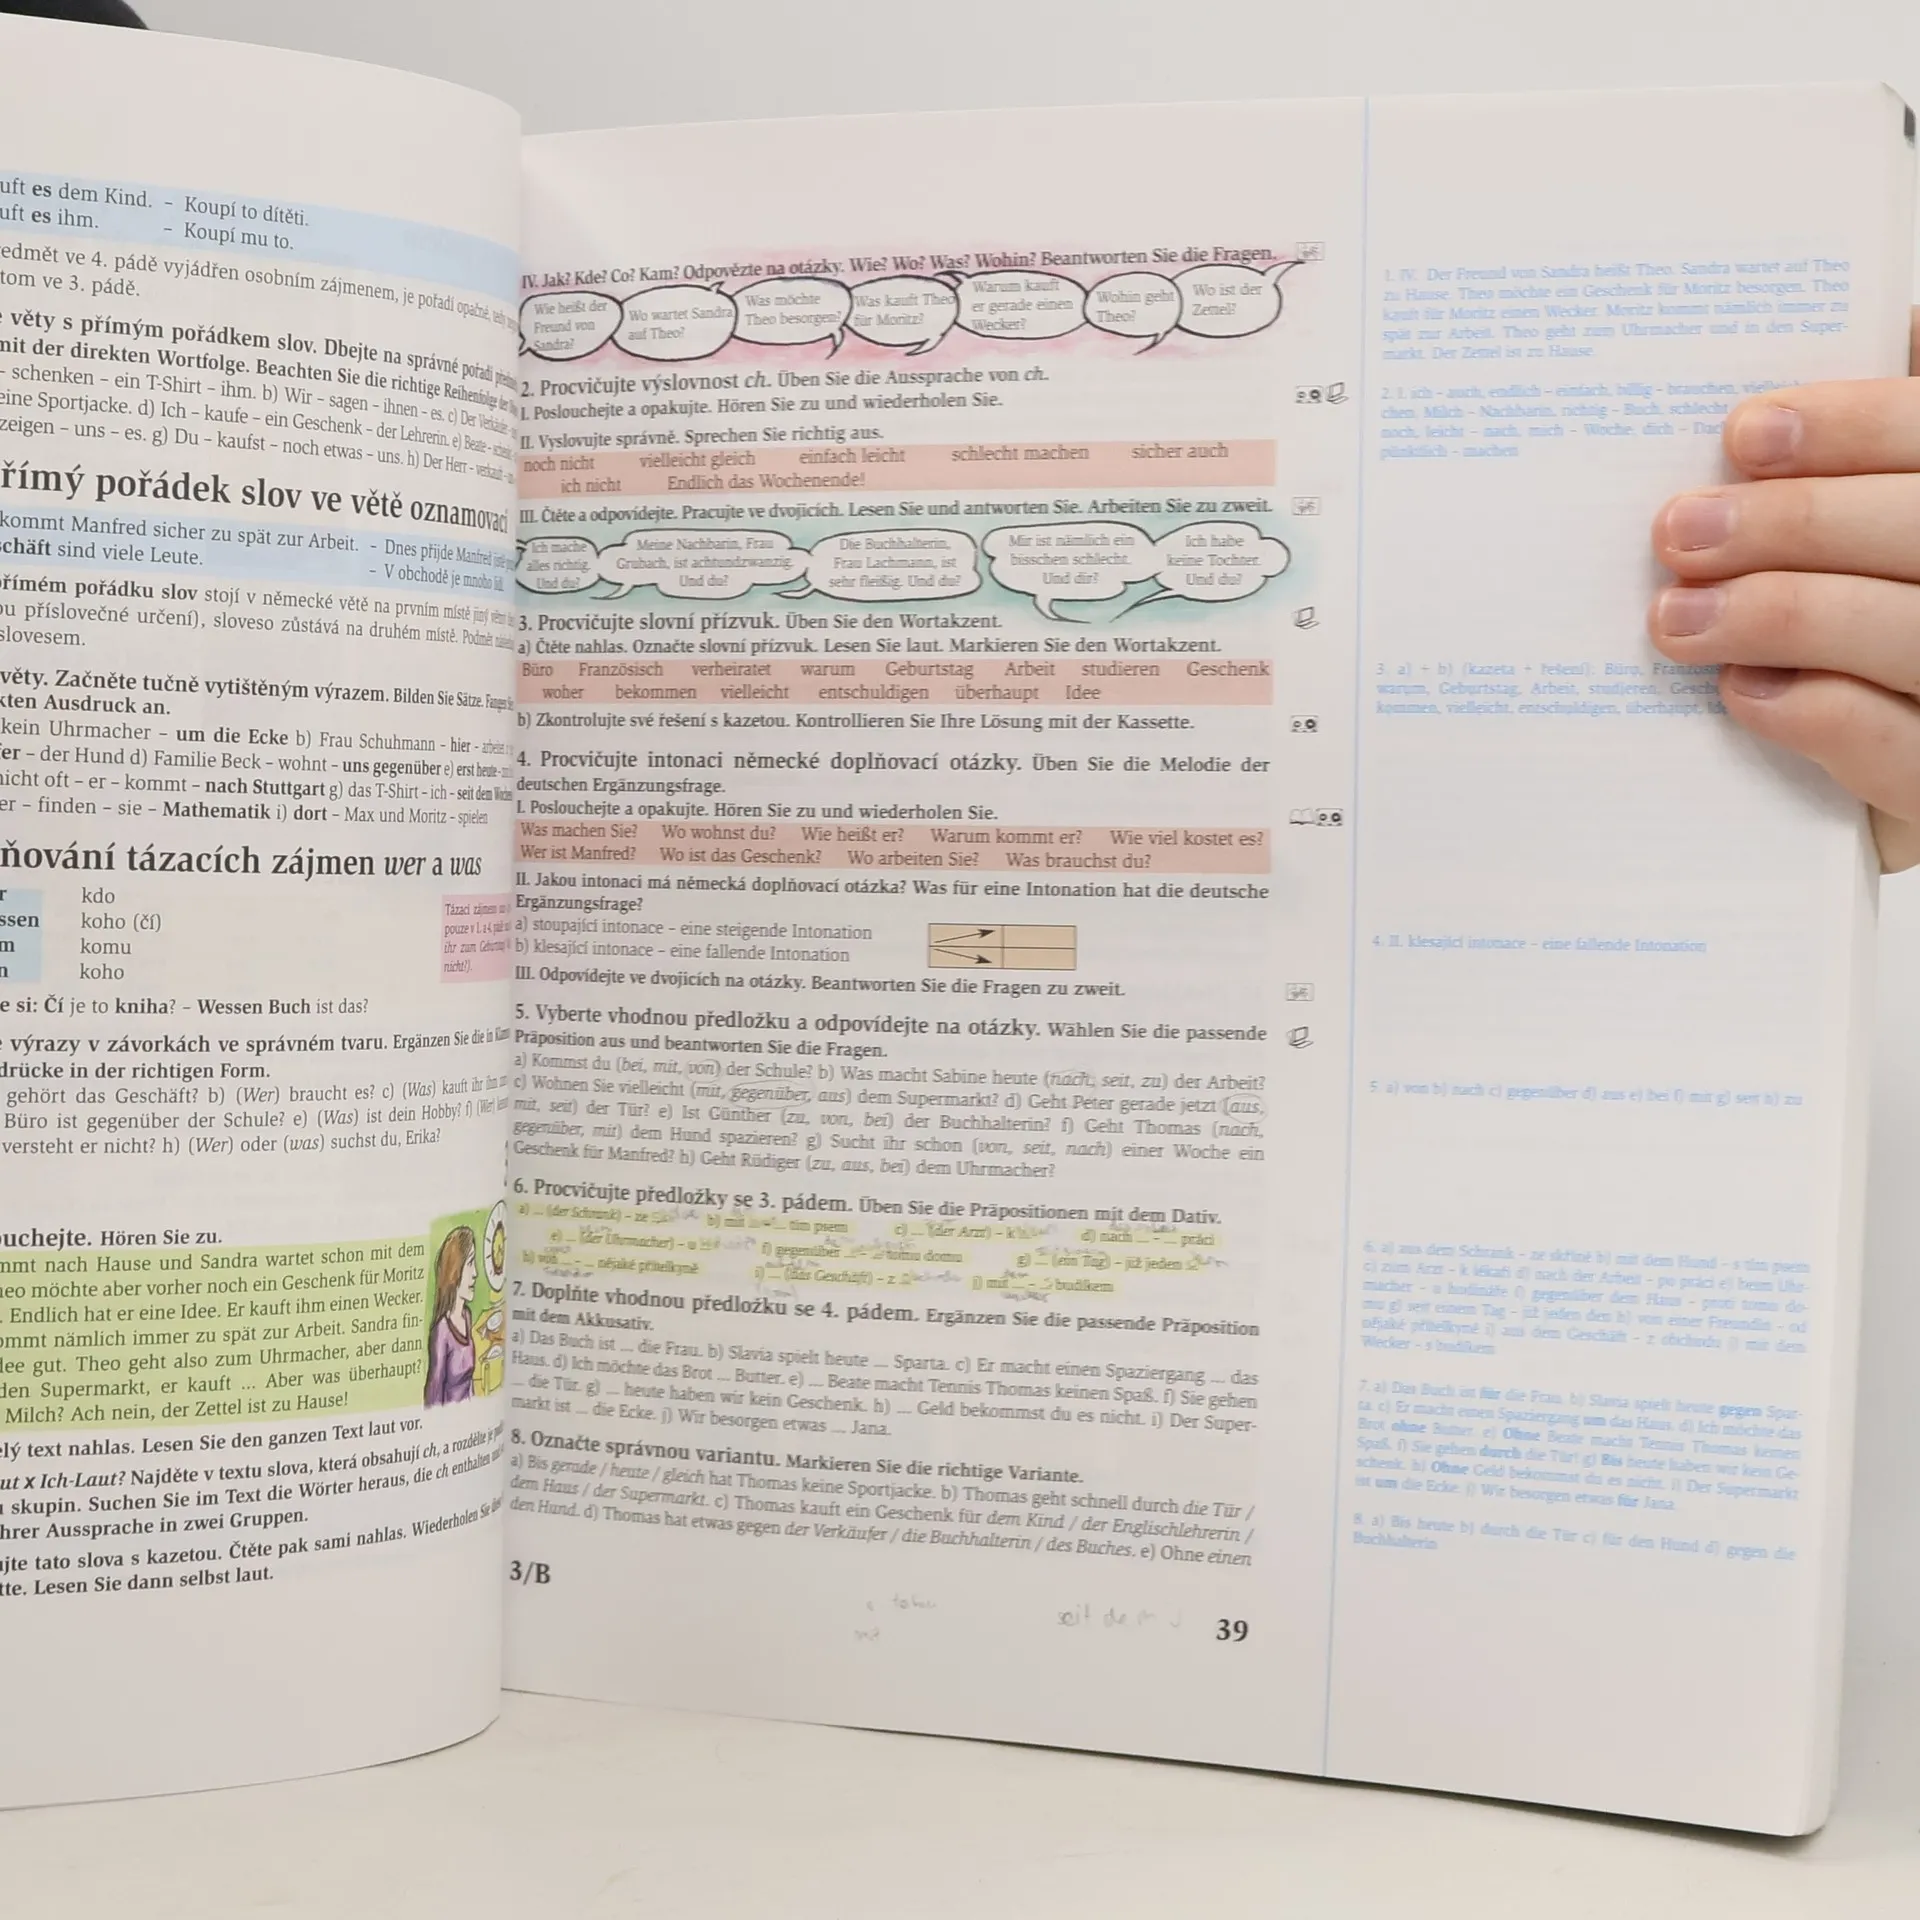 uft es dem Kind. – Koupí to dítěti.
uft es ihm. – Koupí mu to.
edmět ve 4. pádě vyjádřen osobním zájmenem, je pořadí opačné,
tom ve 3. pádě.
věty s přímým pořádkem slov. Dbejte na správné pořadí
mit der direkten Wortfolge. Beachten Sie die richtige Reihenfolge der
– schenken – ein T-Shirt – ihm. b) Wir – sagen – ihnen – es. c) Der Verkäufer
eine Sportjacke. d) Ich – kaufe – ein Geschenk – der Lehrerin. e) Beate –
zeigen – uns – es. g) Du – kaufst – noch etwas – uns. h) Der Herr –
římý pořádek slov ve větě oznamovací
kommt Manfred sicher zu spät zur Arbeit. – Dnes přijde Manfred
schäft sind viele Leute. – V obchodě je mnoho lidí.
římém pořádku slov stojí v německé větě na prvním místě jiný větný
ou příslovečné určení), sloveso zůstává na druhém místě. Podmět
slovesem.
věty. Začněte tučně vytištěným výrazem. Bilden Sie Sätze.
kten Ausdruck an.
kein Uhrmacher – um die Ecke b) Frau Schuhmann – hier –
er – der Hund d) Familie Beck – wohnt – uns gegenüber e) erst heute –
nicht oft – er – kommt – nach Stuttgart g) das T-Shirt – ich –
er – finden – sie – Mathematik i) dort – Max und Moritz – spielen
ňování tázacích zájmen wer a was
r kdo
ssen koho (čí)
m komu
n koho
Tázací zájmen
ihr zum
nicht!).
e si: Čí je to kniha? – Wessen Buch ist das?
výrazy v závorkách ve správném tvaru. Ergänzen Sie die in
drücke in der richtigen Form.
gehört das Geschäft? b) (Wer) braucht es? c) (Was) kauft ihr ihm
Büro ist gegenüber der Schule? e) (Was) ist dein Hobby? f) (Wer)
versteht er nicht? h) (Wer) oder (was) suchst du, Erika?
ouchejte. Hören Sie zu.
mmt nach Hause und Sandra wartet schon mit dem
neo möchte aber vorher noch ein Geschenk für Moritz
. Endlich hat er eine Idee. Er kauft ihm einen Wecker.
ommt nämlich immer zu spät zur Arbeit. Sandra fin-
dee gut. Theo geht also zum Uhrmacher, aber dann
den Supermarkt, er kauft ... Aber was überhaupt?
Milch? Ach nein, der Zettel ist zu Hause!
elý text nahlas. Lesen Sie den ganzen Text laut vor.
ut x Ich-Laut? Najděte v textu slova, která obsahují ch, a rozdělte je
skupin. Suchen Sie im Text die Wörter heraus, die ch enthalten
hrer Aussprache in zwei Gruppen.
jte tato slova s kazetou. Čtěte pak sami nahlas. Wiederholen Sie
tte. Lesen Sie dann selbst laut.
IV. Jak? Kde? Co? Kam? Odpovězte na otázky. Wie? Wo? Was? Wohin? Beantworten Sie die Fragen.
Wie heißt der Freund von Sandra?
Wo wartet Sandra auf Theo?
Was möchte Theo besorgen?
Was kauft Theo für Moritz?
Warum kauft er gerade einen Wecker?
Wohin geht Theo?
Wo ist der Zettel?
2. Procvičujte výslovnost ch. Üben Sie die Aussprache von ch.
I. Poslouchejte a opakujte. Hören Sie zu und wiederholen Sie.
II. Vyslovujte správně. Sprechen Sie richtig aus.
noch nicht vielleicht gleich einfach leicht schlecht machen sicher auch
ich nicht Endlich das Wochenende!
III. Čtěte a odpovídejte. Pracujte ve dvojicích. Lesen Sie und antworten Sie. Arbeiten Sie zu zweit.
Ich mache alles richtig. Und du?
Meine Nachbarin, Frau Grubach, ist achtundzwanzig. Und du?
Die Buchhalterin, Frau Lachmann, ist sehr fleißig. Und du?
Mir ist nämlich ein bisschen schlecht. Und dir?
Ich habe keine Tochter. Und du?
3. Procvičujte slovní přízvuk. Üben Sie den Wortakzent.
a) Čtěte nahlas. Označte slovní přízvuk. Lesen Sie laut. Markieren Sie den Wortakzent.
Büro Französisch verheiratet warum Geburtstag Arbeit studieren Geschenk
woher bekommen vielleicht entschuldigen überhaupt Idee
b) Zkontrolujte své řešení s kazetou. Kontrollieren Sie Ihre Lösung mit der Kassette.
4. Procvičujte intonaci německé doplňovací otázky. Üben Sie die Melodie der
deutschen Ergänzungsfrage.
I. Poslouchejte a opakujte. Hören Sie zu und wiederholen Sie.
Was machen Sie? Wo wohnst du? Wie heißt er? Warum kommt er? Wie viel kostet es?
Wer ist Manfred? Wo ist das Geschenk? Wo arbeiten Sie? Was brauchst du?
II. Jakou intonaci má německá doplňovací otázka? Was für eine Intonation hat die deutsche
Ergänzungsfrage?
a) stoupající intonace – eine steigende Intonation
b) klesající intonace – eine fallende Intonation
III. Odpovídejte ve dvojicích na otázky. Beantworten Sie die Fragen zu zweit.
5. Vyberte vhodnou předložku a odpovídejte na otázky. Wählen Sie die passende
Präposition aus und beantworten Sie die Fragen.
a) Kommst du (bei, mit, von) der Schule? b) Was macht Sabine heute (nach, seit, zu) der Arbeit?
c) Wohnen Sie vielleicht (mit, gegenüber, aus) dem Supermarkt? d) Geht Peter gerade jetzt (aus,
mit, seit) der Tür? e) Ist Günther (zu, von, bei) der Buchhalterin? f) Geht Thomas (nach,
gegenüber, mit) dem Hund spazieren? g) Sucht ihr schon (von, seit, nach) einer Woche ein
Geschenk für Manfred? h) Geht Rüdiger (zu, aus, bei) dem Uhrmacher?
6. Procvičujte předložky se 3. pádem. Üben Sie die Präpositionen mit dem Dativ.
a) ... (der Schrank) – ze b) mit ... – ... tím psem c) ... (der Arzt) – k d) nach ... – ... práci
e) ... (der Uhrmacher) – u f) gegenüber ... – ... tomu domu g) ... (ein Tag) – již jeden
h) von ... – ... nějaké přítelkyně i) ... (das Geschäft) – z j) mit ... – ... budíkem
7. Doplňte vhodnou předložku se 4. pádem. Ergänzen Sie die passende Präposition
mit dem Akkusativ.
a) Das Buch ist ... die Frau. b) Slavia spielt heute ... Sparta. c) Er macht einen Spaziergang ... das
Haus. d) Ich möchte das Brot ... Butter. e) ... Beate macht Tennis Thomas keinen Spaß. f) Sie gehen
... die Tür. g) ... heute haben wir kein Geschenk. h) ... Geld bekommst du es nicht. i) Der Super-
markt ist ... die Ecke. j) Wir besorgen etwas ... Jana.
8. Označte správnou variantu. Markieren Sie die richtige Variante.
a) Bis gerade / heute / gleich hat Thomas keine Sportjacke. b) Thomas geht schnell durch die Tür /
dem Haus / der Supermarkt. c) Thomas kauft ein Geschenk für dem Kind / der Englischlehrerin /
den Hund. d) Thomas hat etwas gegen der Verkäufer / die Buchhalterin / des Buches. e) Ohne einen
3/B
seit de
39
1. IV. Der Freund von Sandra heißt Theo. Sandra wartet auf Theo
zu Hause. Theo möchte ein Geschenk für Moritz besorgen. Theo
kauft für Moritz einen Wecker. Moritz kommt nämlich immer zu
spät zur Arbeit. Theo geht zum Uhrmacher und in den Super-
markt. Der Zettel ist zu Hause.
2. I. ich – auch, endlich – einfach, billig – brauchen,
chen, Milch – Nachbarin, richtig – Buch, schlecht
noch, leicht – nach, mich – Woche, dich –
pünktlich – machen
3. a) + b) (kazeta + řešení): Büro,
warum, Geburtstag, Arbeit, studieren,
kommen, vielleicht, entschuldigen, überhaupt,
4. II. klesající intonace – eine fallende Intonation
5. a) von b) nach c) gegenüber d) aus e) bei f) mit g) seit h) zu
6. a) aus dem Schrank – ze skříně b) mit dem Hund – s tím psem
c) zum Arzt – k lékaři d) nach der Arbeit – po práci e) beim Uhr-
macher – u hodináře f) gegenüber dem Haus – proti tomu do-
mu g) seit einem Tag – již jeden den h) von einer Freundin – od
nějaké přítelkyně i) aus dem Geschäft – z obchodu j) mit dem
Wecker – s budíkem
7. a) Das Buch ist für die Frau. b) Slavia spielt heute gegen Spar-
ta. c) Er macht einen Spaziergang um das Haus. d) Ich möchte das
Brot ohne Butter. e) Ohne Beate macht Tennis Thomas keinen
Spaß. f) Sie gehen durch die Tür. g) Bis heute haben wir kein Ge-
schenk. h) Ohne Geld bekommst du es nicht. i) Der Supermarkt
ist um die Ecke. j) Wir besorgen etwas für Jana.
8. a) Bis heute b) durch die Tür c) für den Hund d) gegen die
Buchhalterin